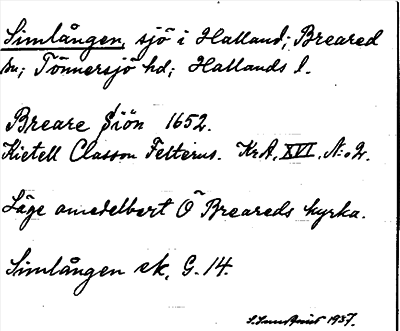 Simlången, sjö i Halland; Breared
sn; Tönnersjö hd; Hallands l.
Breare Siön 1652.
Kietell Classon Felterus. KrA, XVI, N:o 2.
Läge omedelbart Ö Breareds kyrka.
Simlången ek, G. 14.
1937.